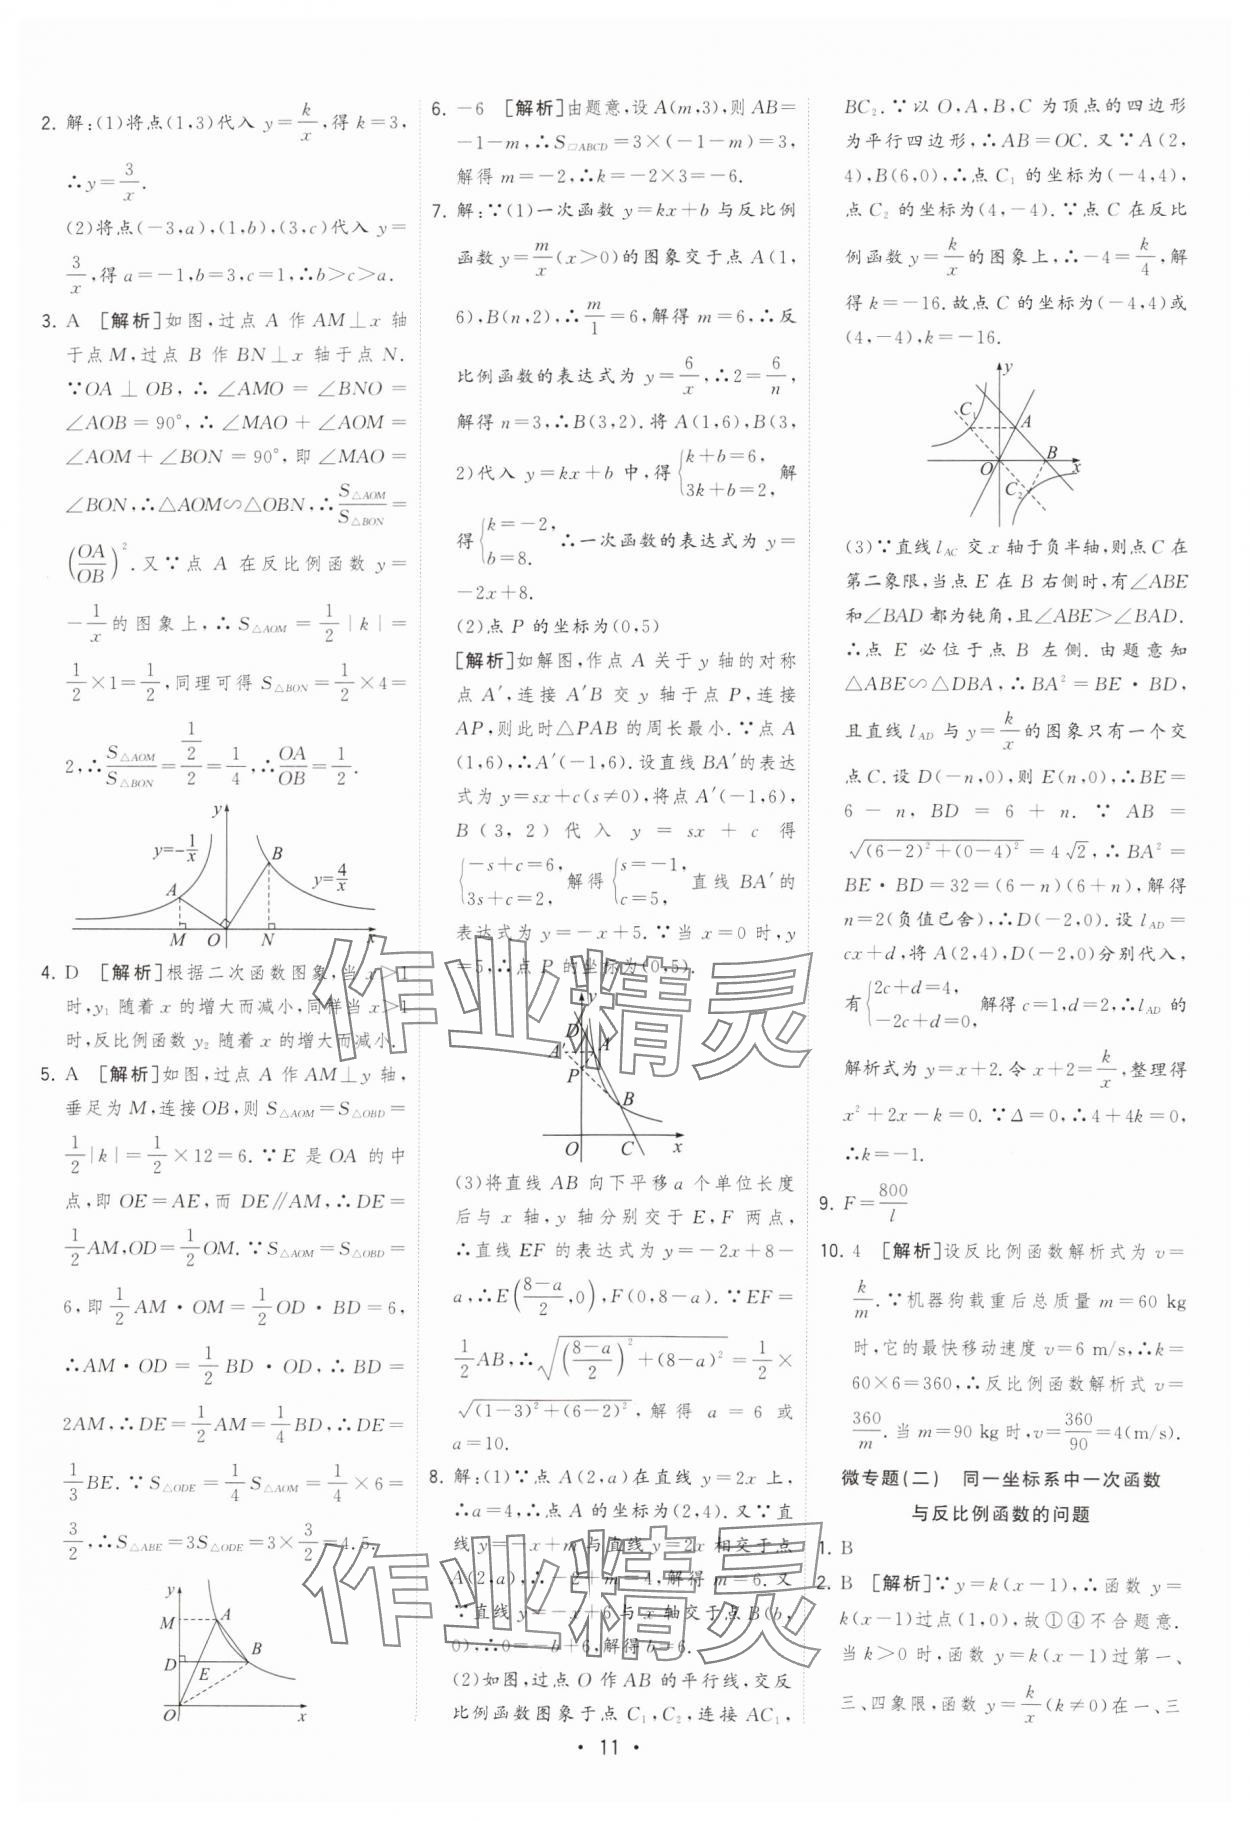 2. 解:(1)将点(1,3)代入 y=k/x,得 k=3,
∴y=3/x.
(2)将点(-3,a),(1,b),(3,c)代入 y=
3/x,得 a=-1,b=3,c=1,∴b>c>a.
3. A [解析]如图,过点 A 作 AM⊥x 轴
于点 M,过点 B 作 BN⊥x 轴于点 N.
∵OA⊥OB,∴∠AMO=∠BNO=
∠AOB=90°,∴∠MAO+∠AOM=
∠AOM+∠BON=90°,即∠MAO=
∠BON,∴△AOM∽△OBN,∴S△AOM/S△BON=
(OA/OB)². 又∵点 A 在反比例函数 y=
-1/x 的图象上,∴S△AOM=1/2|k|=
1/2×1=1/2,同理可得 S△BON=1/2×4=
2,∴S△AOM/S△BON=(1/2)/2=1/4,∴OA/OB=1/2.
y
y=-1/x
B
y=4/x
A
M O N x
4. D [解析]根据二次函数图象,当 x>1
时,y₁ 随着 x 的增大而减小,同样当 x>1
时,反比例函数 y₂ 随着 x 的增大而减小.
5. A [解析]如图,过点 A 作 AM⊥y 轴,
垂足为 M,连接 OB,则 S△AOM=S△OBD=
1/2|k|=1/2×12=6.∵E 是 OA 的中
点,即 OE=AE,而 DE∥AM,∴DE=
1/2AM,OD=1/2OM.∵S△AOM=S△OBD=
6,即1/2AM·OM=1/2OD·BD=6,
∴AM·OD=1/2BD·OD,∴BD=
2AM,∴DE=1/2AM=1/4BD,∴DE=
1/3BE.∵S△ODE=1/4S△AOM=1/4×6=
3/2,∴S△ABE=3S△ODE=3×3/2=4.5.
y
M A
D E B
O x
6. -6 [解析]由题意,设 A(m,3),则 AB=
-1-m,∴S□ABCD=3×(-1-m)=3,
解得 m=-2,∴k=-2×3=-6.
7. 解:∵(1)一次函数 y=kx+b 与反比例
函数 y=m/x(x>0)的图象交于点 A(1,
6),B(n,2),∴m/1=6,解得 m=6,∴反
比例函数的表达式为 y=6/x,∴2=6/n,
解得 n=3,∴B(3,2).将 A(1,6),B(3,
2)代入 y=kx+b 中,得{k+b=6, 3k+b=2, 解
得{k=-2, b=8. ∴一次函数的表达式为 y=
-2x+8.
(2)点 P 的坐标为(0,5)
[解析]如解图,作点 A 关于 y 轴的对称
点 A′,连接 A′B 交 y 轴于点 P,连接
AP,则此时△PAB 的周长最小.∵点 A
(1,6),∴A′(-1,6).设直线 BA′的表达
式为 y=sx+c(s≠0),将点 A′(-1,6),
B(3,2)代入 y=sx+c 得
{-s+c=6, 3s+c=2, 解得{s=-1, c=5, 直线 BA′的
表达式为 y=-x+5.∵当 x=0 时,y
=5,∴点 P 的坐标为(0,5).
y
D
A′ A
P
B
O C x
(3)将直线 AB 向下平移 a 个单位长度
后与 x 轴,y 轴分别交于 E,F 两点,
∴直线 EF 的表达式为 y=-2x+8-
a,∴E((8-a)/2,0),F(0,8-a).∵EF=
1/2AB,∴√(((8-a)/2)²+(8-a)²)=1/2×
√((1-3)²+(6-2)²),解得 a=6 或
a=10.
8. 解:(1)∵点 A(2,a)在直线 y=2x 上,
∴a=4,∴点 A 的坐标为(2,4).又∵直
线 y=-x+m 与直线 y=2x 相交于点
A(2,a),∴-2+m=4,解得 m=6.又
∵直线 y=-x+6 与 x 轴交于点 B(b,
0),∴0=-b+6,解得 b=6.
(2)如图,过点 O 作 AB 的平行线,交反
比例函数图象于点 C₁,C₂,连接 AC₁,
BC₂.∵以 O,A,B,C 为顶点的四边形
为平行四边形,∴AB=OC.又∵A(2,
4),B(6,0),∴点 C₁ 的坐标为(-4,4),
点 C₂ 的坐标为(4,-4).∵点 C 在反比
例函数 y=k/x 的图象上,∴-4=k/4,解
得 k=-16.故点 C 的坐标为(-4,4)或
(4,-4),k=-16.
y
C₁ A
O B x
C₂
(3)∵直线 l_AC 交 x 轴于负半轴,则点 C 在
第二象限,当点 E 在 B 右侧时,有∠ABE
和∠BAD 都为钝角,且∠ABE>∠BAD.
∴点 E 必位于点 B 左侧.由题意知
△ABE∽△DBA,∴BA²=BE·BD,
且直线 l_AD 与 y=k/x 的图象只有一个交
点 C.设 D(-n,0),则 E(n,0),∴BE=
6-n,BD=6+n.∵AB=
√((6-2)²+(0-4)²)=4√2,∴BA²=
BE·BD=32=(6-n)(6+n),解得
n=2(负值已舍),∴D(-2,0).设 l_AD=
cx+d,将 A(2,4),D(-2,0)分别代入,
有{2c+d=4, -2c+d=0, 解得 c=1,d=2,∴l_AD 的
解析式为 y=x+2.令 x+2=k/x,整理得
x²+2x-k=0.∵Δ=0,∴4+4k=0,
∴k=-1.
9. F=800/l
10. 4 [解析]设反比例函数解析式为 v=
k/m.∵机器狗载重后总质量 m=60 kg
时,它的最快移动速度 v=6 m/s,∴k=
60×6=360,∴反比例函数解析式 v=
360/m.当 m=90 kg 时,v=360/90=4(m/s).
微专题(二) 同一坐标系中一次函数
与反比例函数的问题
1. B
2. B [解析]∵y=k(x-1),∴函数 y=
k(x-1)过点(1,0),故①④不合题意.
当 k>0 时,函数 y=k(x-1)过第一、
三、四象限,函数 y=k/x(k≠0)在一、三
作业精灵
作业精灵
· 11 ·